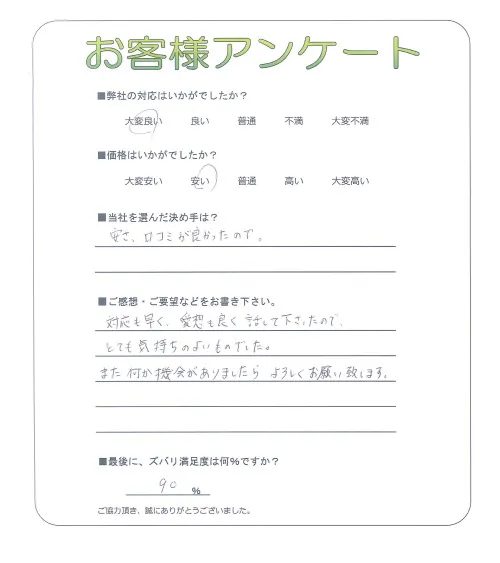 お客様アンケート
■弊社の対応はいかがでしたか？
大変良い 良い 普通 不満 大変不満
■価格はいかがでしたか？
大変安い 安い 普通 高い 大変高い
■当社を選んだ決め手は？
安さ、口コミが良かったので。
■ご感想・ご要望などをお書き下さい。
対応も早く、愛想も良く話して下さったので、
とても気持ちのよいものでした。
また何か機会がありましたらよろしくお願い致します。
■最後に、ズバリ満足度は何%ですか？
90 %
ご協力頂き、誠にありがとうございました。